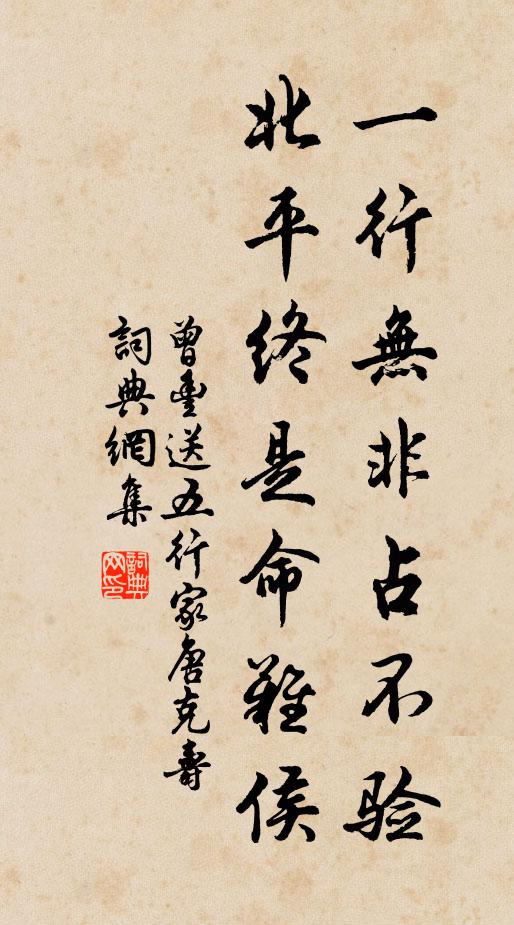 一行無非占不验
北平終是命難侯
曾豊送五行家唐克壽
詞典網集
詞典
网印